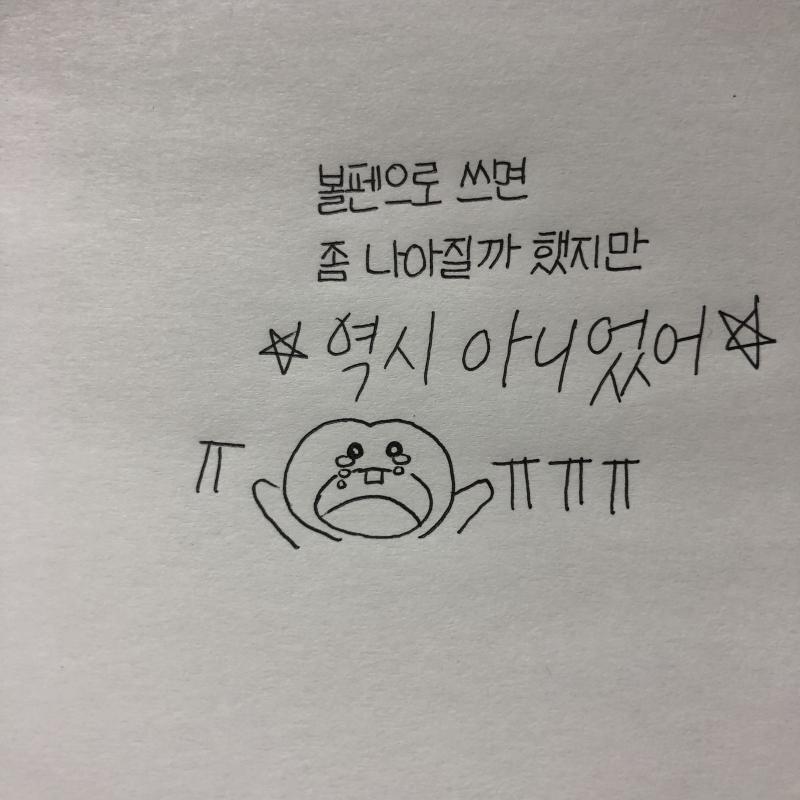 볼펜으로 쓰면
좀 나아질까 했지만
☆역시 아니었어☆
ㅠ ㅠㅠㅠ